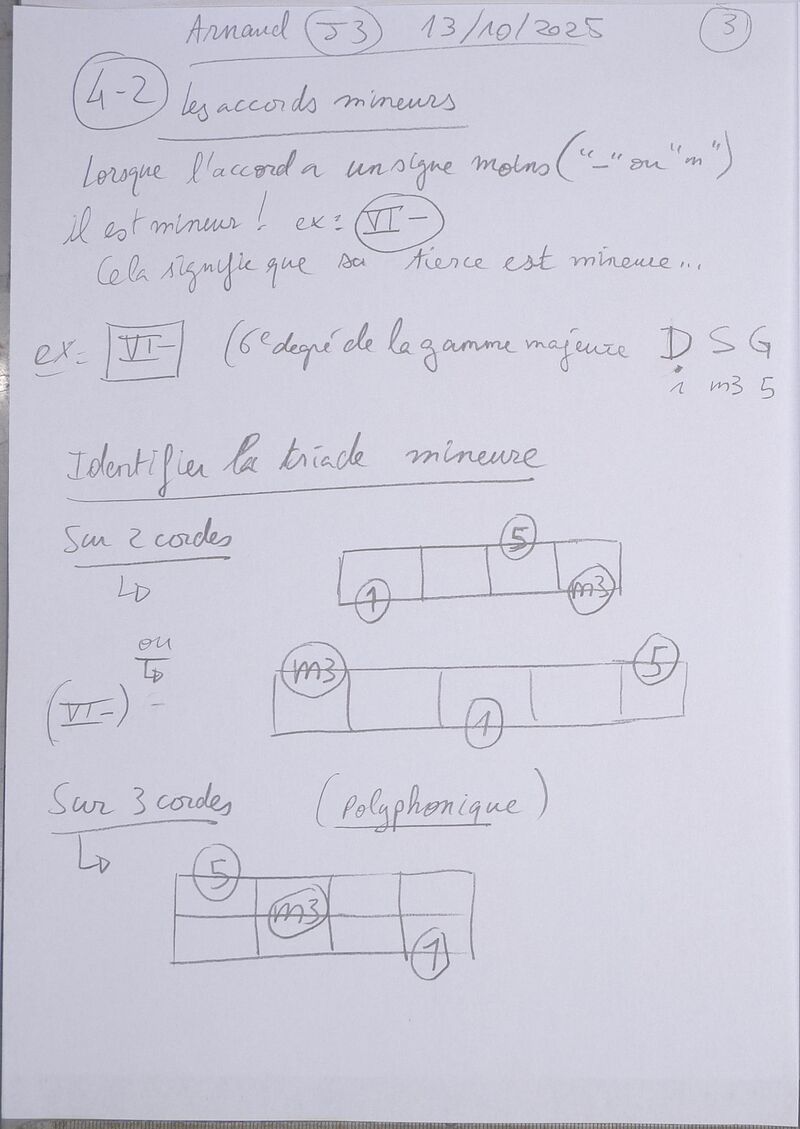 Arnaud J3 13/10/2025 3
4-2 Les accords mineurs
Lorsque l'accord a un signe moins ("-" ou "m")
il est mineur! ex: VI-
Cela signifie que sa tierce est mineure...
ex: VI- (6e degré de la gamme majeure D S G
1 m3 5
Identifier la triade mineure
Sur 2 cordes
5
1 m3
ou
m3 5
(VI-) 1
Sur 3 cordes (polyphonique)
5
m3
1